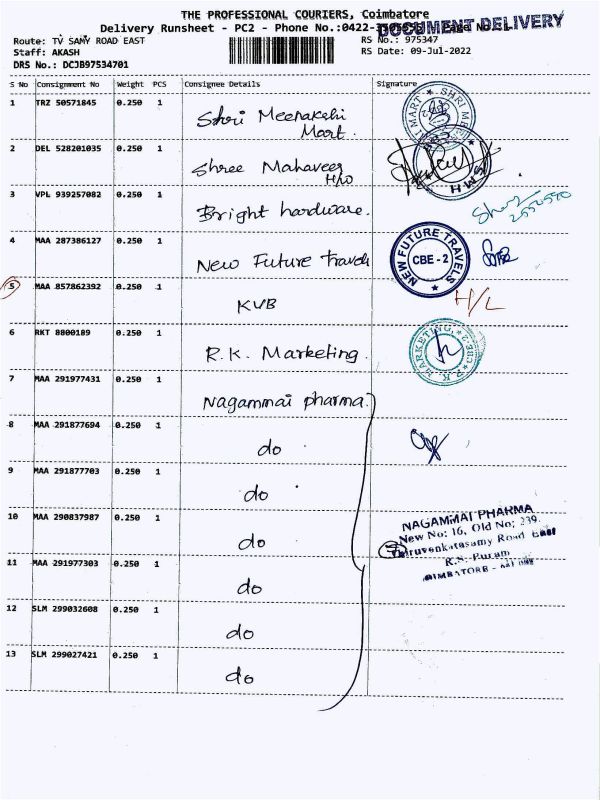 THE PROFESSIONAL COURIERS, Coimbatore
DOCUMENT DELIVERY
Delivery Runsheet - PC2 - Phone No.:0422-
Route: TV SAMY ROAD EAST
RS No.: 975347
Staff: AKASH
RS Date: 09-Jul-2022
DRS No.: DCJB97534701
S No Consignment No Weight PCS Consignee Details Signature
1 TRZ 50571845 0.250 1 Shri Meenakshi Mart.
SHRI ME
MART
2 DEL 528201035 0.250 1 Shree Mahaveer H/W
SMH
3 VPL 939257082 0.250 1 Bright hardware.
4 MAA 287386127 0.250 1 New Future travels
NEW FUTURE TRAVELS
CBE - 2
5 MAA 857862392 0.250 1 KVB
H/L
6 RKT 8800189 0.250 1 R.K. Marketing.
R.K. MARKETING, CBE-2
7 MAA 291977431 0.250 1 Nagammai pharma.
8 MAA 291877694 0.250 1 do
9 MAA 291877703 0.250 1 do
10 MAA 290837987 0.250 1 do
NAGAMMAI PHARMA
New No: 16, Old No; 239.
Thiruvenkatasamy Road East
R.S. Puram
COIMBATORE - 641 002
11 MAA 291977303 0.250 1 do
12 SLM 299032608 0.250 1 do
13 SLM 299027421 0.250 1 do